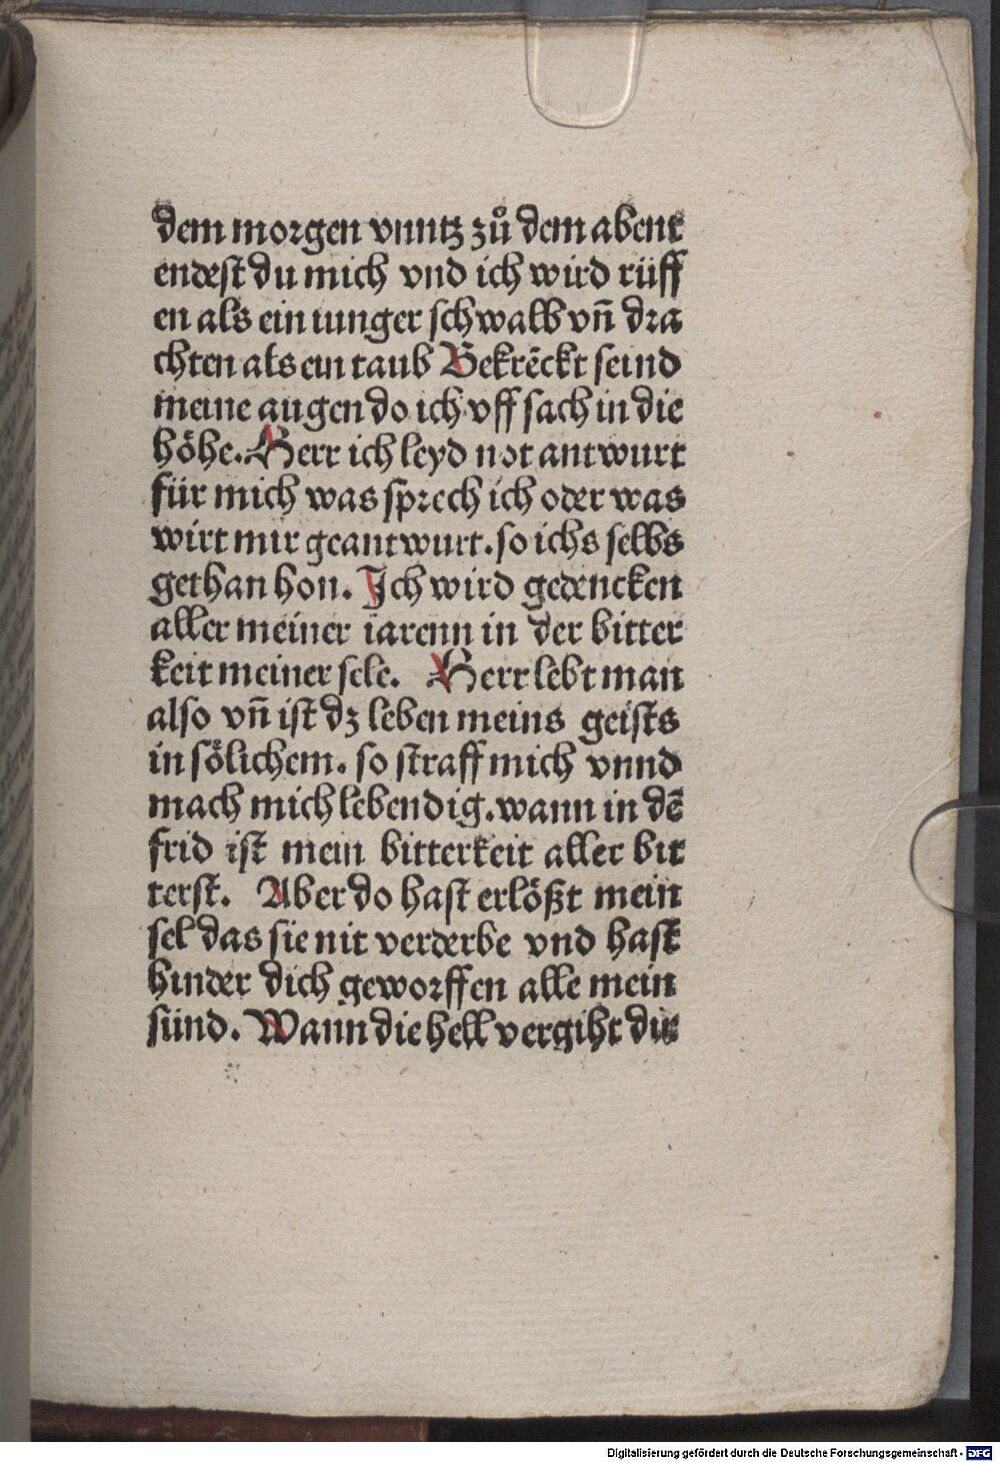 dem morgen vnntz zů dem abent
endest du mich vnd ich wird rüff
en als ein iunger schwalb vn̄ dra
chten als ein taub Bekrēckt seind
meine augen do ich vff sach in die
höhe. Herr ich leyd not antwurt
für mich was sprech ich oder was
wirt mir geantwurt. so ichs selbs
gethan hon. Ich wird gedencken
aller meiner iarenn in der bitter
keit meiner sele. Herr lebt man
also vn̄ ist dz leben meins geists
in sölichem. so straff mich vnnd
mach mich lebendig. wann in dē
frid ist mein bitterkeit aller bit
terst. Aber do hast erlößt mein
sel das sie nit verderbe vnd hast
hinder dich geworffen alle mein
sünd. Wann die hell vergiht din
Digitalisierung gefördert durch die Deutsche Forschungsgemeinschaft - DFG